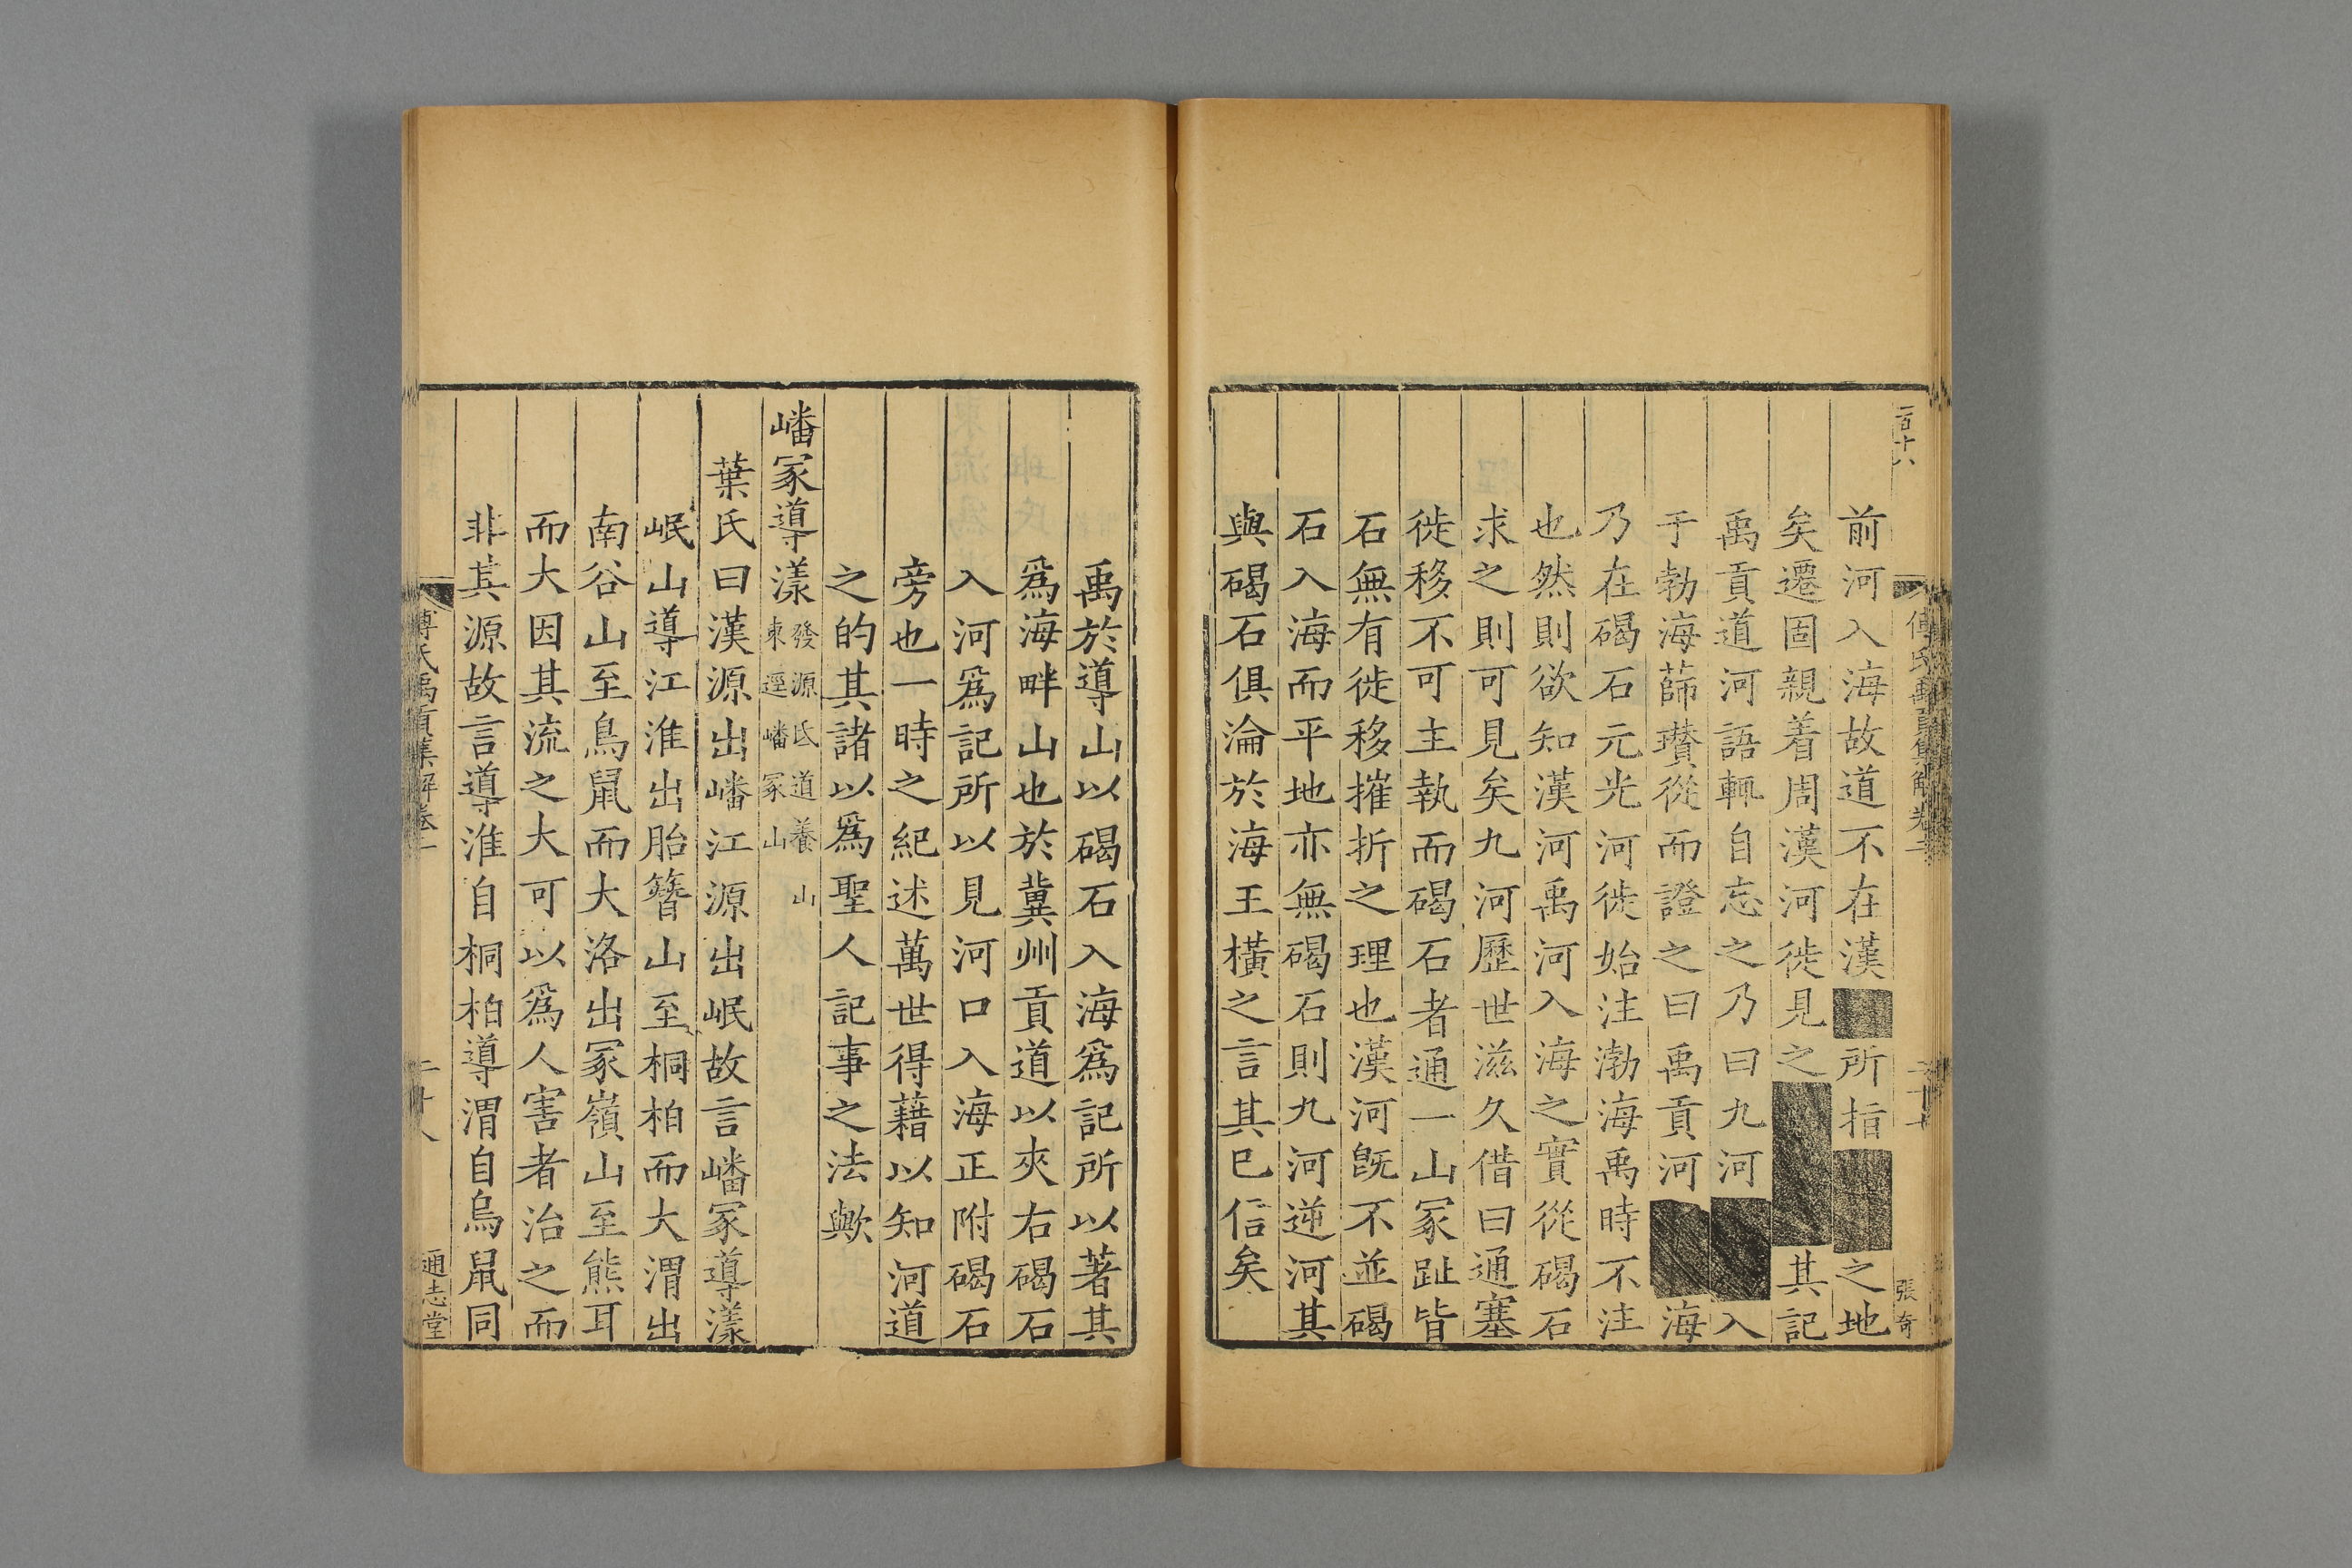 前河入海故道不在漢■所指■■之地
矣遷固親着周漢河徙見之■■■其記
禹貢道河語輒自忘之乃曰九河■■入
于勃海薛瓚從而證之曰禹貢河■■海
乃在碣石元光河徙始注渤海禹時不注
也然則欲知漢河禹河入海之實從碣石
求之則可見矣九河歷世滋久借曰通塞
徙移不可主執而碣石者通一山冢趾皆
石無有徙移摧折之理也漢河旣不並碣
石入海而平地亦無碣石則九河逆河其
與碣石俱淪於海王橫之言其巳信矣
張奇
禹於導山以碣石入海爲記所以著其
爲海畔山也於冀州貢道以夾右碣石
入河爲記所以見河口入海正附碣石
旁也一時之紀述萬世得藉以知河道
之的其諸以爲聖人記事之法歟
嶓冢導漾發源氐道養山東逕嶓冢山
葉氏曰漢源出嶓江源出岷故言嶓冢導漾
岷山導江淮出胎簪山至桐柏而大渭出
南谷山至鳥鼠而大洛出冢嶺山至熊耳
而大因其流之大可以爲人害者治之而
非其源故言導淮自桐柏導渭自鳥鼠同
傅氏禹貢集解卷二
二十八
通志堂